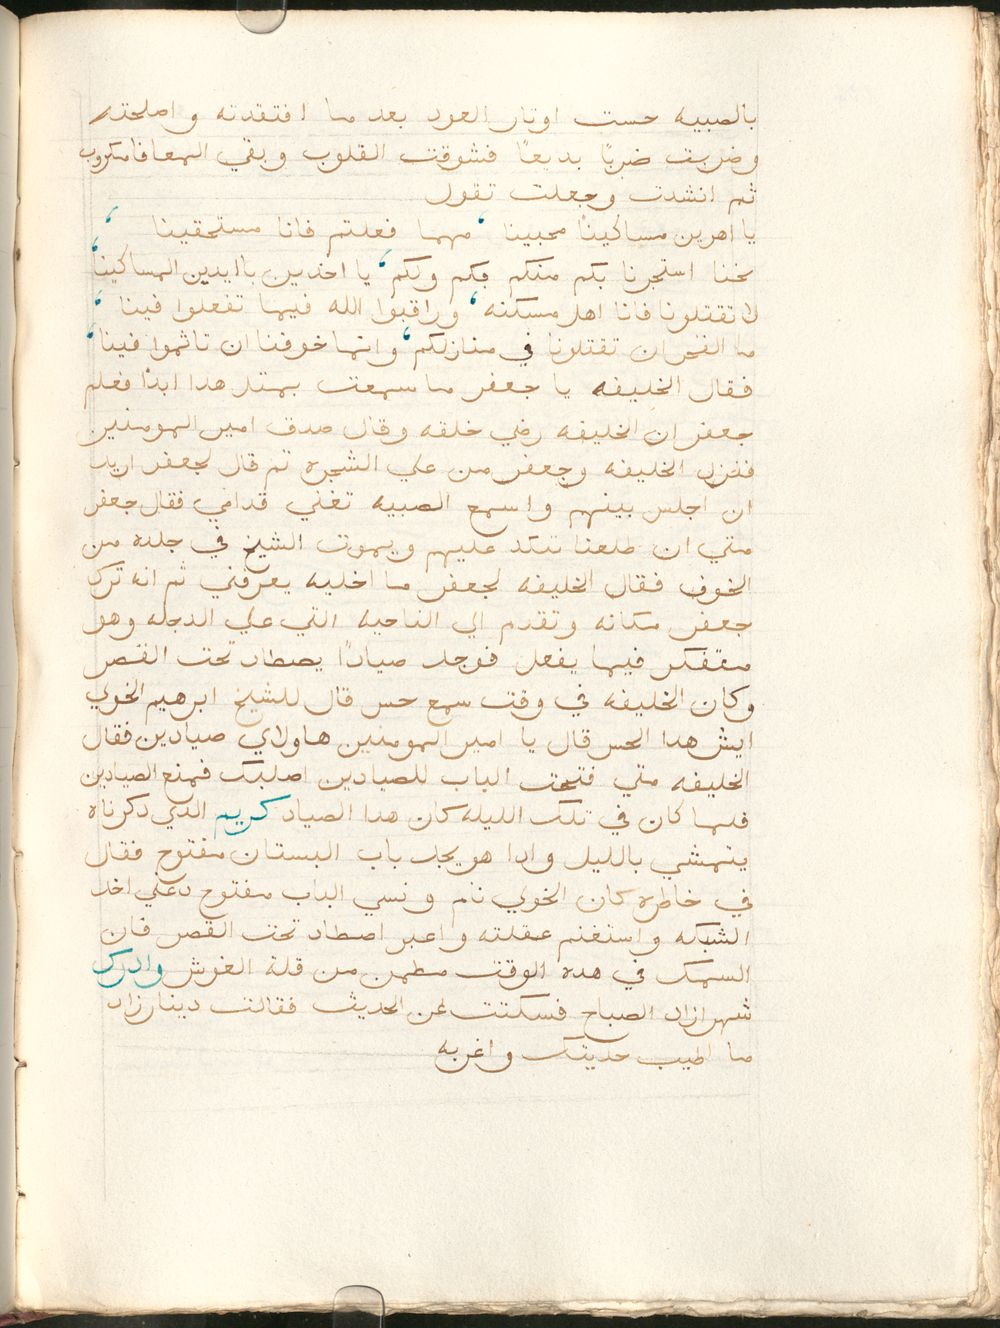 بالصبيه حست اوتار العود بعد ما افتقدته واصلحته
وضربت ضربًا بديعًا فشوقت القلوب وبقي المعافا مكروب
ثم انشدت وجعلت تقول
يا اهرين مساكينًا محبينا ، مهما فعلتم فانا مستحقينا ،
نحنا استجرنا بكم منكم فكم ولكم ، يا اخدين باايدين المساكينا ،
لا تقتلونا فانا اهل مسكنه ، وراقبوا الله فيما تفعلوا فينا ،
ما الفخر ان تقتلونا في منازلكم ، وانما خوفنا ان تاثموا فينا ،
فقال الخليفه يا جعفر ما سمعت بمتل هدا ابدًا فعلم
جعفر ان الخليفه رضي خلقه وقال صدق امير المومنين
فنزل الخليفه وجعفر من علي الشجره تم قال لجعفر اريد
ان اجلس بينهم واسمع الصبيه تغني قدامي فقال جعفر
متي ان طلعنا تنكد عليهم ويموت الشيخ في جلده من
الخوف فقال الخليفه لجعفر ما اخليه يعرفني ثم انه ترك
جعفر مكانه وتقدم الي الناحيه التي علي الدجله وهو
متفكر فيما يفعل فوجد صيادًا يصطاد تحت القصر
وكان الخليفه في وقت سمع حس قال للشيخ ابرهيم الخولي
ايش هدا الحس قال يا امير المومنين هاولاي صيادين فقال
الخليفه متي فتحت الباب للصيادين اصلبك فمنع الصيادين
فلما كان في تلك الليله كان هدا الصياد كريم الدي دكرناه
يتمشي بالليل وادا هو يجد باب البستان مفتوح فقال
في خاطره كان الخولي نام ونسي الباب مفتوح دعني اخد
الشبكه واستغنم غفلته واعبر اصطاد تحت القصر فان
السمك في هده الوقت مطمن من قلة الغوش وادرك
شهرازاد الصباح فسكتت عن الحديث فقالت دينارزاد
ما اطيب حديتك واغربه